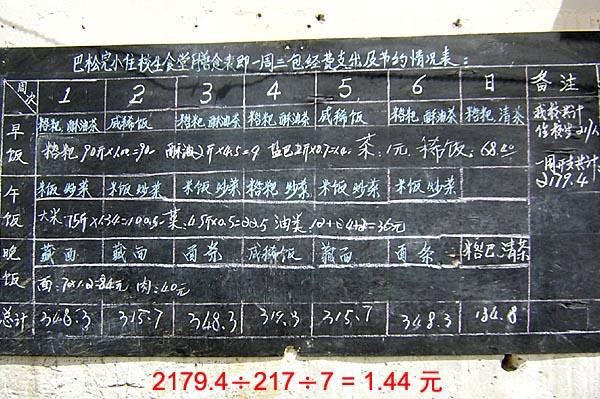 巴松完小住校生食堂膳食表即一周三包经费支出及节约情况表:
周次 1 2 3 4 5 6 日 备注
早饭 糌粑 酥油茶 咸稀饭 糌粑 酥油茶 糌粑 酥油茶 咸稀饭 糌粑 酥油茶 糌粑 清茶
我校共计
住校生217人
一周开支共计
2179.4
糌粑 90斤×1.00=90 酥油2斤×4.5=9 茶:1元 稀饭:68.40
午饭 米饭 炒菜 米饭 炒菜 米饭 炒菜 糌粑 炒菜 米饭 炒菜 米饭 炒菜
大米:75斤×1.34=100.5 菜:45斤×0.5=22.5 油类 12+24+2=36元
晚饭 藏面 藏面 面条 咸稀饭 藏面 面条 糌巴 清茶
面:70×1.2=84元 肉:40元
总计 348.3 315.7 348.3 319.3 315.7 348.3 184.8
2179.4÷217÷7 = 1.44 元